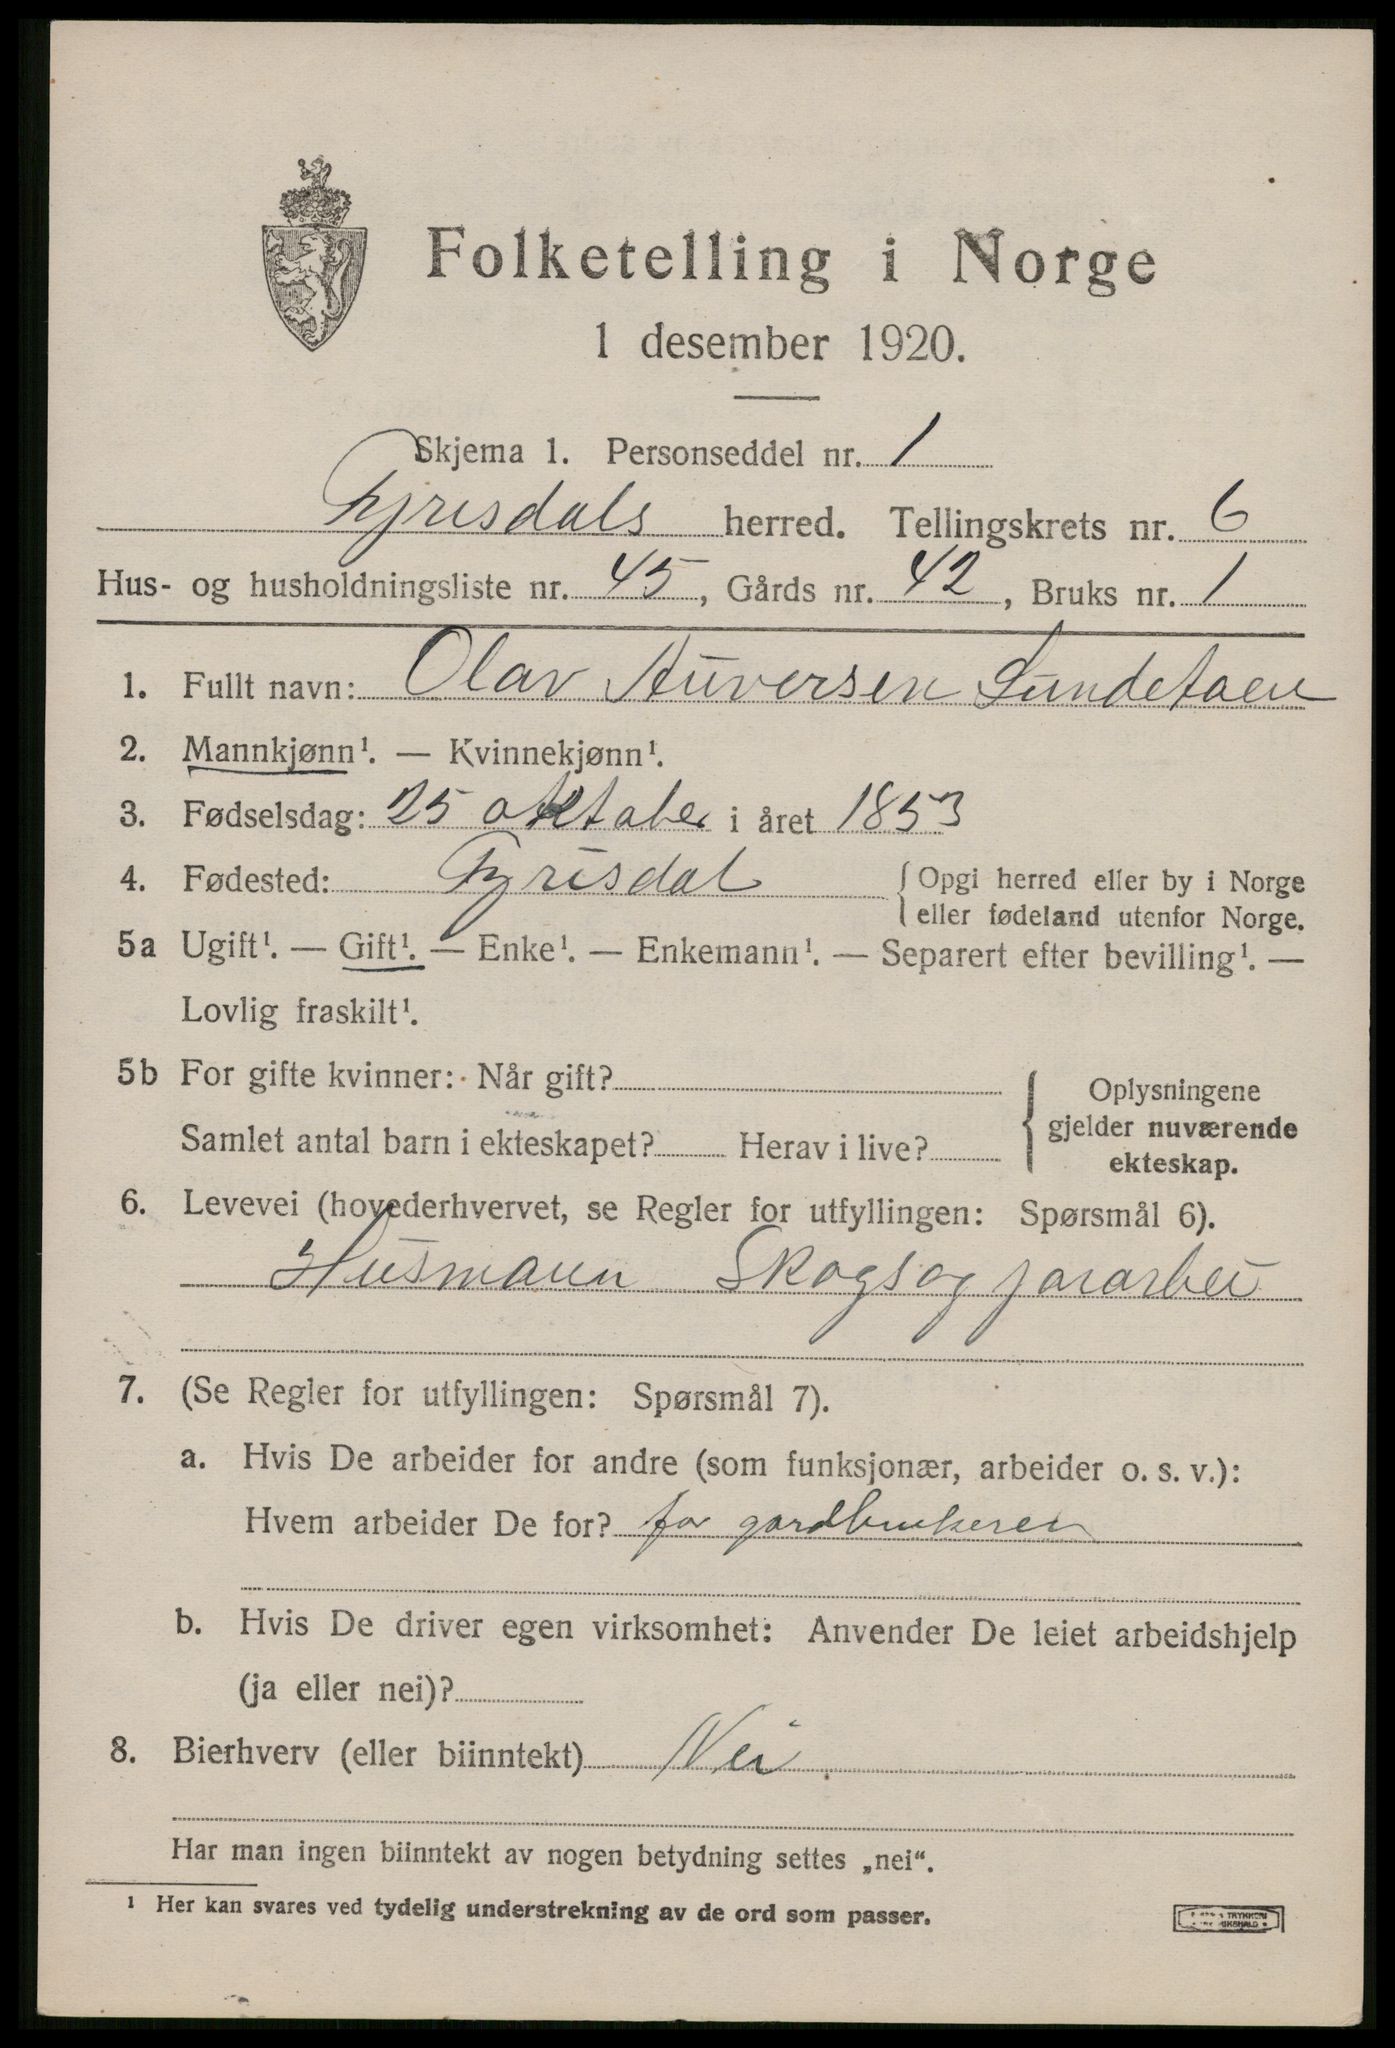 Folketelling i Norge
1 desember 1920.
Skjema 1. Personseddel nr. 1
Fyrisdals herred. Tellingskrets nr. 6
Hus- og husholdningsliste nr. 45, Gårds nr. 42, Bruks nr. 1
1. Fullt navn: Olav Auversen Sundetaen
2. Mannkjønn¹. — Kvinnekjønn¹.
3. Fødselsdag: 25 oktober i året 1853
4. Fødested: Fyrisdal { Opgi herred eller by i Norge
eller fødeland utenfor Norge.
5a Ugift¹. — Gift¹. — Enke¹. — Enkemann¹. — Separert efter bevilling¹. —
Lovlig fraskilt¹.
5b For gifte kvinner: Når gift?
Samlet antal barn i ekteskapet? Herav i live?
{ Oplysningene
gjelder nuværende
ekteskap.
6. Levevei (hovederhvervet, se Regler for utfyllingen: Spørsmål 6).
Husmann Skogs og jorarbei
7. (Se Regler for utfyllingen: Spørsmål 7).
a. Hvis De arbeider for andre (som funksjonær, arbeider o. s. v.):
Hvem arbeider De for? for gardbrukeren
b. Hvis De driver egen virksomhet: Anvender De leiet arbeidshjelp
(ja eller nei)?
8. Bierhverv (eller biinntekt) Nei
Har man ingen biinntekt av nogen betydning settes „nei“.
¹ Her kan svares ved tydelig understrekning av de ord som passer.